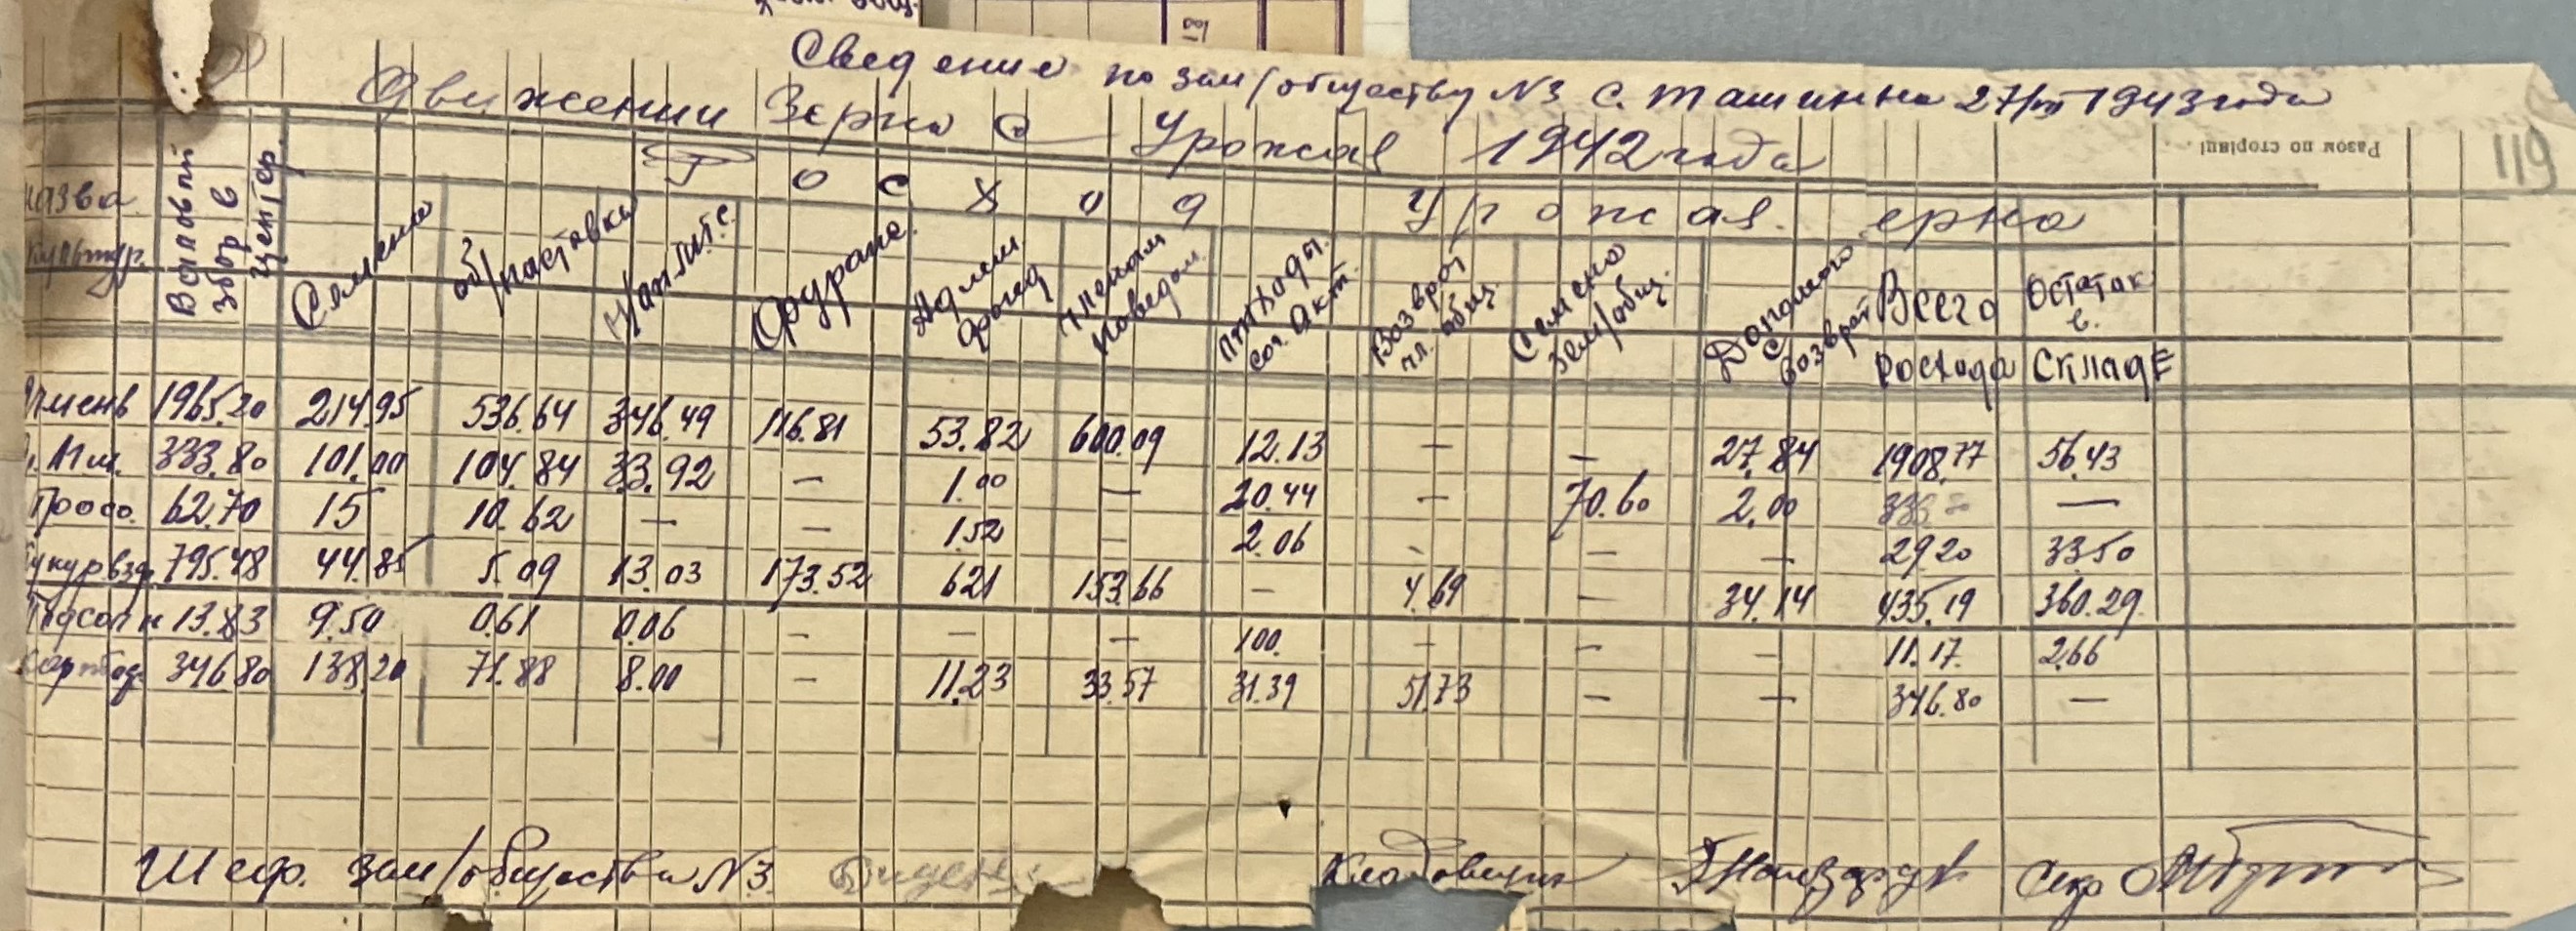 Сведение по зем/обществу №3 С. Ташинна 27/VII 1943 года
Движении Зерна с Урожая 1942 года
Разом по сторінці
119
Росход Урожая ерна
назва культур.
Валовый збор в центнер.
Семена
об/поставка
Н/оп. М.т.с.
Фураже.
Админ. фонд
Членам поведом.
отходы сог. Акт.
Возврат чл. общ.
Семено зем/общ.
Дополного возврат
Всего Росхода
Остаток в. Складе
Ячмень 1965.20 214.95 536.64 346.49 116.81 53.82 600.09 12.13 — — 27.84 1908.77 56.43
Пш. 333.80 101.00 104.84 33.92 — 1.00 — 20.44 — 70.60 2.00 333 —
Просо. 62.70 15 10.62 — — 1.52 — 2.06 - — — 29.20 33.50
Кукурвза. 795.48 44.85 5.09 13.03 173.52 6.21 153.66 — 4.69 — 34.14 435.19 360.29
Подсолн 13.83 9.50 0.61 0.06 — — — 100. — — — 11.17. 2.66
Картод. 346.80 138.20 71.88 8.00 — 11.23 33.57 31.39 51.73 — — 346.80 —
Шеф. зем/общества №3 Кладовщик Секр